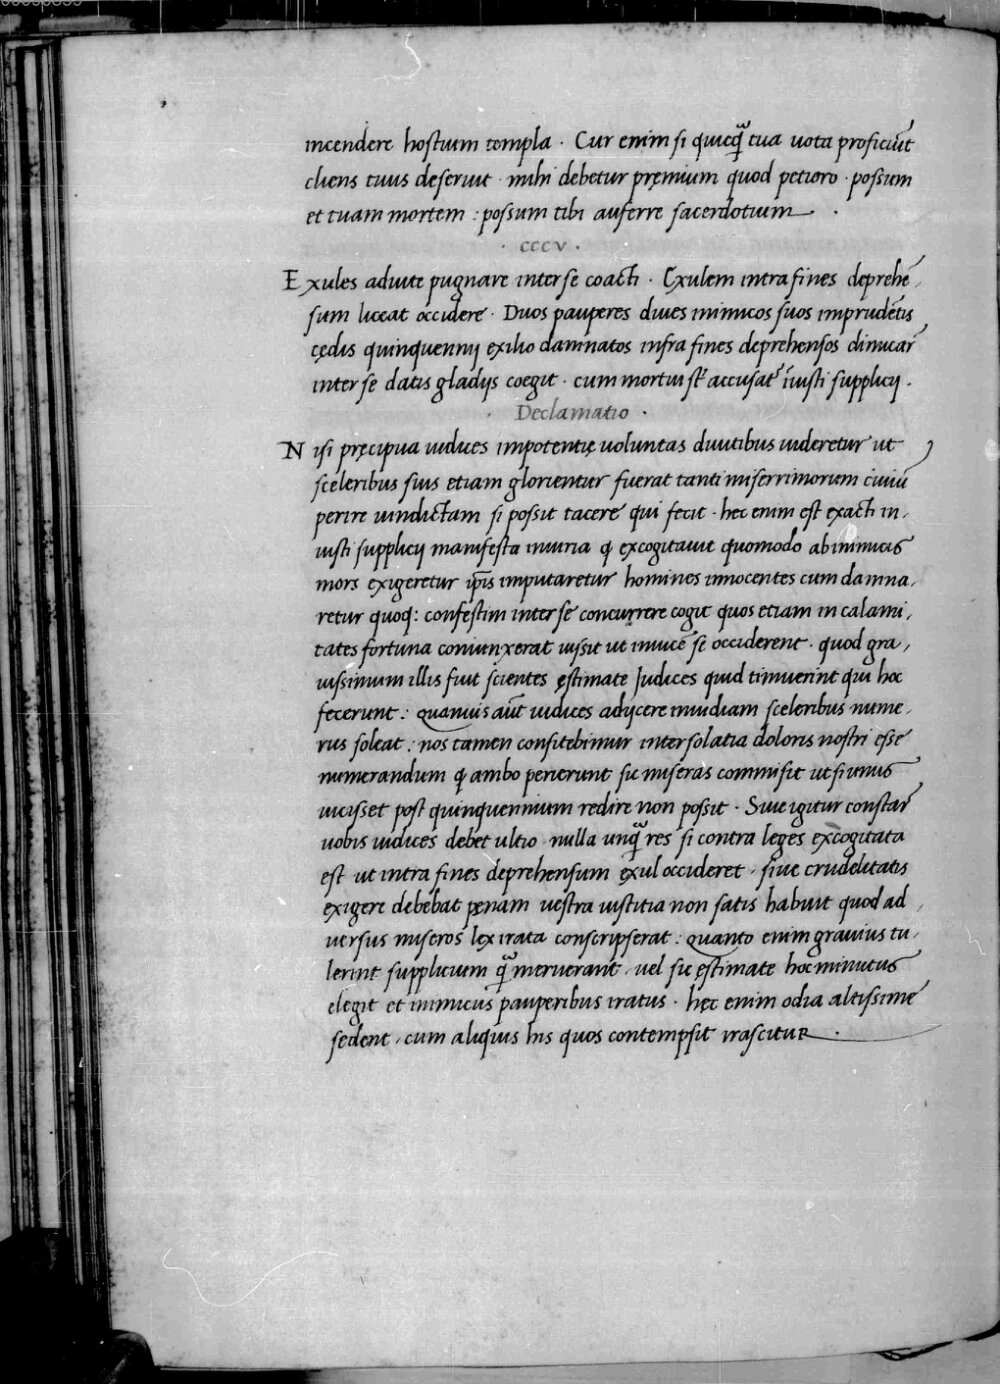 incendere hostium templa · Cur enim si quicq̃ tua uota proficiũt
cliens tuus deseruit · mihi debetur pręmium quod petioro · possum
et tuam mortem : possum tibi auferre sacerdotium ·
· cccv ·
Exules adiuite pugnare inter se coacti · Exulem intra fines deprehẽ,
sum liceat occidere · Duos pauperes diues inimicos suos imprudẽtis
cędis quinquennij exilio damnatos infra fines deprehensos dimicar̃
inter se datis gladijs coegit · cum mortui st̃ accusat̃ ĩiusti supplicij ·
· Declamatio ·
Nisi pręcipua iudices impotentię uoluntas diuitibus uideretur ut
sceleribus suis etiam glorientur fuerat tanti miserrimorum ciuiũ
perire uindictam si possit tacere qui fecit · hec enim est exacti in,
iusti supplicij manifesta iniuria ꝙ excogitauit quomodo ab inimicis
mors exigeretur ip̃is imputaretur homines innocentes cum damna,
retur quoq: confestim inter se concurrere cogit quos etiam in calami,
tates fortuna coniunxerat iussit ut inuicẽ se occiderent · quod gra,
uissimum illis fuit scientes ęstimate Iudices quid timuerint qui hoc
fecerunt : quamuis aũt iudices adijcere inuidiam sceleribus nume,
rus soleat : nos tamen confitebimur inter solatia doloris nostri esse
numerandum ꝙ ambo perierunt sic miseras commisit ut si unus
uicisset post quinquennium redire non possit · Siue igitur constar̃
uobis iudices debet ultio nulla unq̃ res si contra leges excogitata
est ut intra fines deprehensum exul occideret , siue crudelitatis
exigere debebat pęnam uestra iustitia non satis habuit quod ad ,
uersus miseros lex irata conscripserat : quanto enim grauius tu,
lerint supplicium q̃ meruerant , uel sic ęstimate hoc minutus
elegit et inimicus pauperibus iratus · hęc enim odia altissime
sedent , cum aliquis his quos contempsit irascitur ·